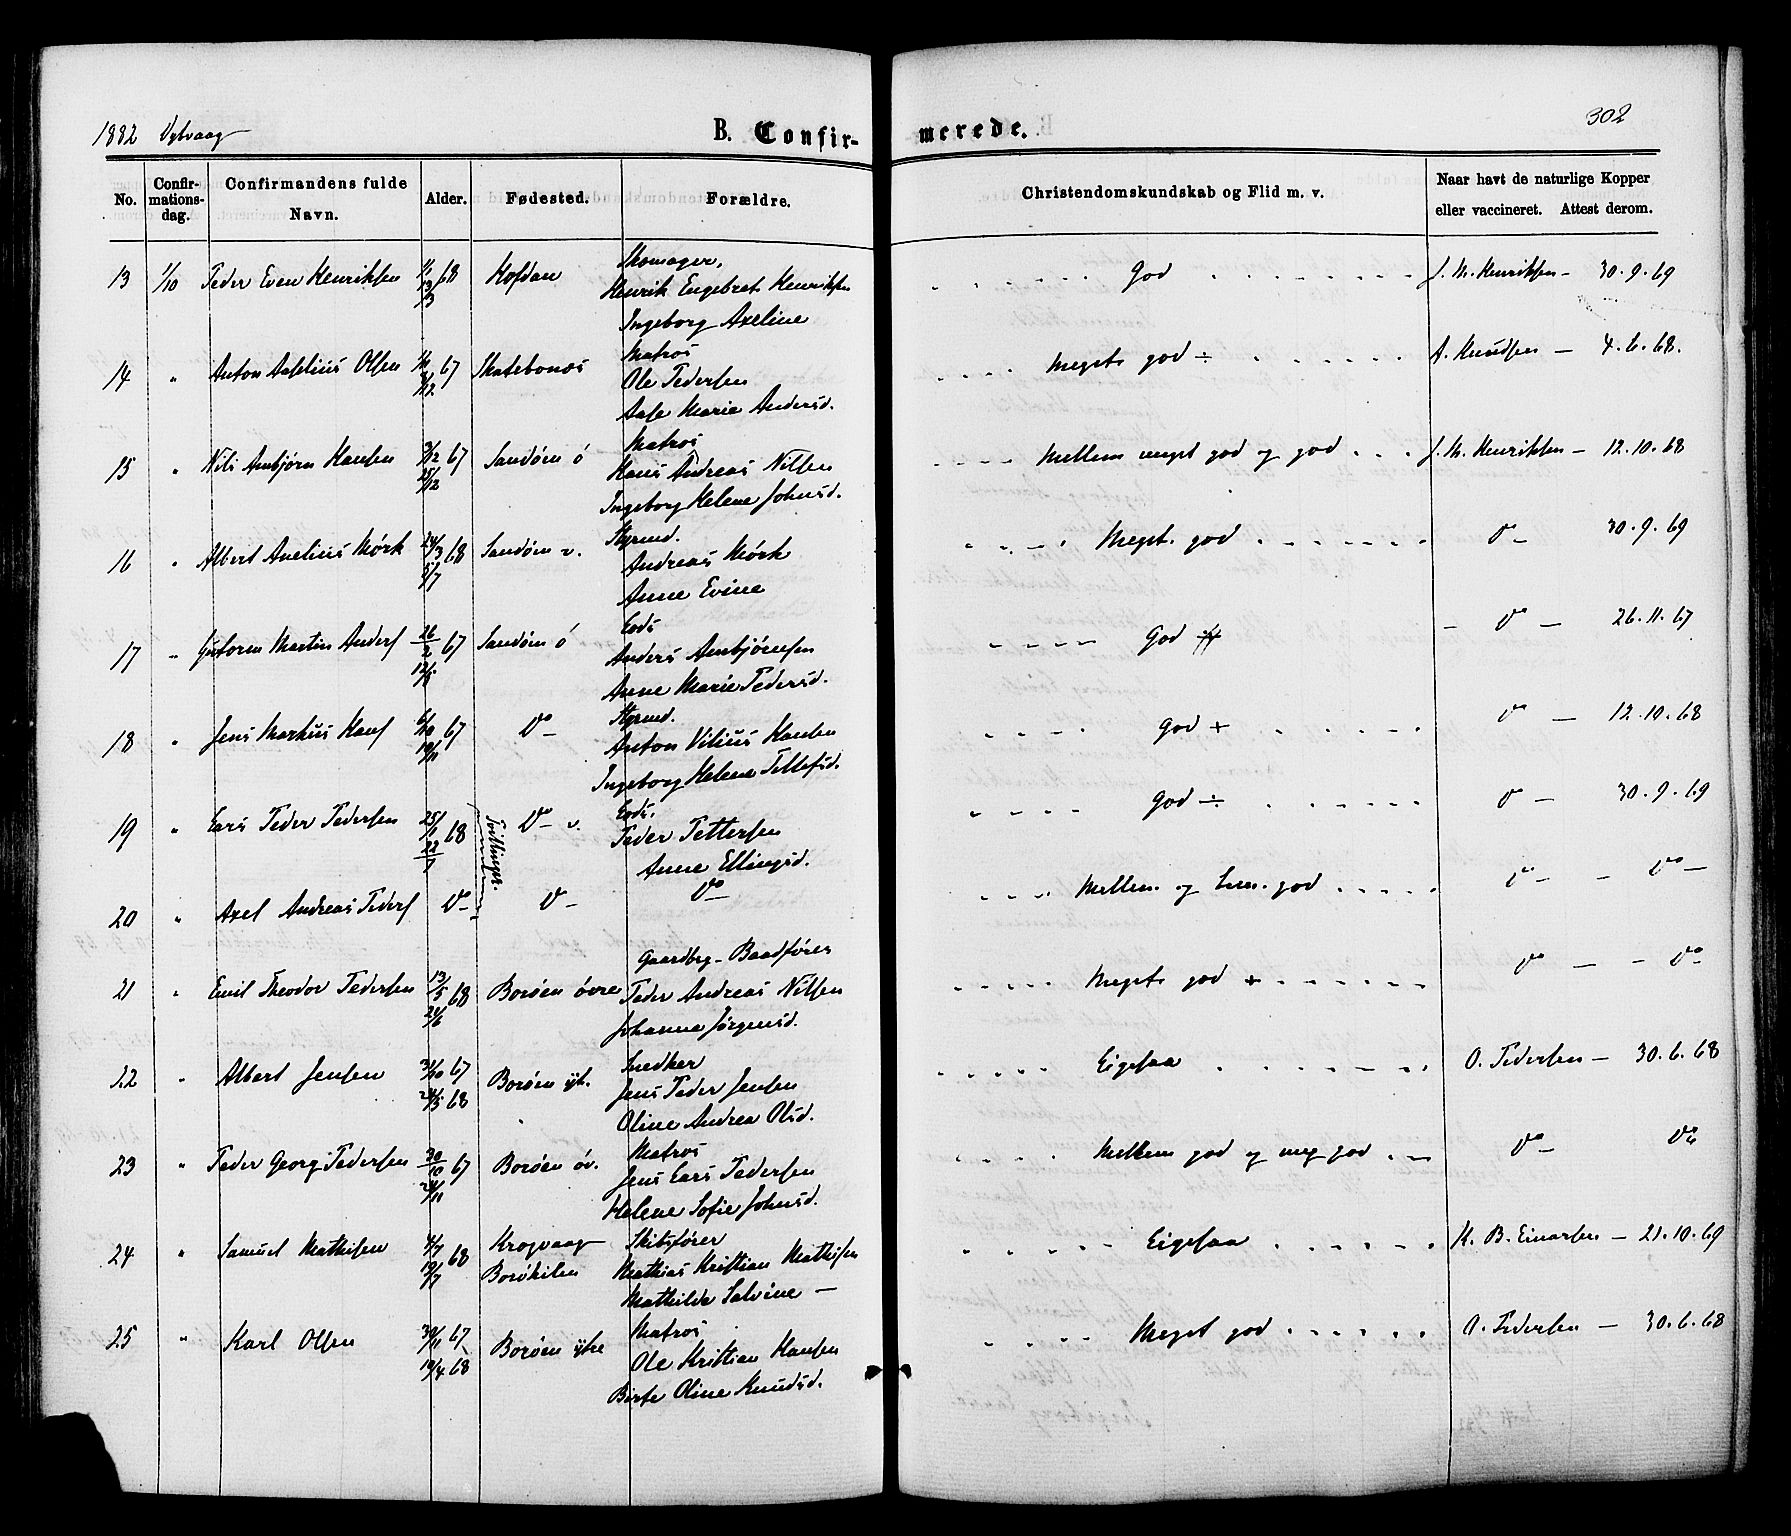 1882
302
B. Confir-
merede.
No.
Confir-
mations-
dag.
Confirmandens fulde
Navn.
Alder.
Fødested.
Forældre.
Christendomskundskab og Flid m. v.
Naar havt de naturlige Kopper
eller vaccineret. Attest derom.
13 1/10 Peder Even Henriksen 68
Skomager,
Henrik Engebret Henriksen
Ingeborg Axeline
God
J. M. Henriksen — 30.9.69
14 " Anton Olsen 67
Matros
Ole Pedersen
Aase Marie Andersd.
Meget god ÷
A. Knudsen — 4.6.68.
15 " Nils Arnbjørn Hansen 67 Sandøen ö
25/12
Matros
Hans Andreas Nilsen
Ingeborg Helene Johnsd.
Mellem meget god og god
J. M. Henriksen — 12.10.68
16 " Albert Mörk 24/3 68 Sandøen v.
5/7
Styrmd.
Andreas Mörk
Anne Evine
Meget god
Do — 30.9.69
17 " Guttorm Martin Anders 26/2 67 Sandøen ö
Lods
Anders Arnbjörnsen
Anne Marie Pedersd.
God
— Do — 26.11.67
18 " Jens Markus Hans 6/10 67 Do
19/11
Styrmd.
Anton Vilius Hansen
Ingeborg Helene Tellefsd.
God +
Do — 12.10.68
19 " Lars Peder Pedersen 25/1 68 Do v.
22/7
Tvillinger.
Lods.
Peder Pettersen
Anne Ellingsd.
God ÷
Do — 30.9.69
20 " Axel Andreas Peders Do Do
Do
Mellem og god
Do — Do —
21 " Emil Theodor Pedersen 13/5 68 Borøen övre
24/6
Gaardbr. Baadfører
Peder Andreas Nilsen
Johanna Jörgensd.
Meget god +
Do — Do
22 " Albert Jensen 31/10 67 Borøen yt.
24/5 68
Snedker
Jens Peder Jensen
Oline Andrea Olsd.
Eigesaa
O. Pedersen — 30.6.68
23 " Peder Georg Pedersen 30/10 67 Borøen öv.
24/11
Matros
Jens Lars Pedersen
Helene Sofie Johnsd.
Mellem god og meg god
Do — Do
24 " Samuel Mathisen 4/7 68 Krogvaag
19/7 Borøkilen
Skibsfører
Mathias Kristian Mathisen
Mathilde Salvine —
Eigesaa
K. B. Einarsen — 21.10.69
25 " Karl Olsen 30/11 67 Borøen ytre
19/4 68
Matros
Ole Kristian Hansen
Birte Oline Knudsd.
Meget god
O. Pedersen — 30.6.68